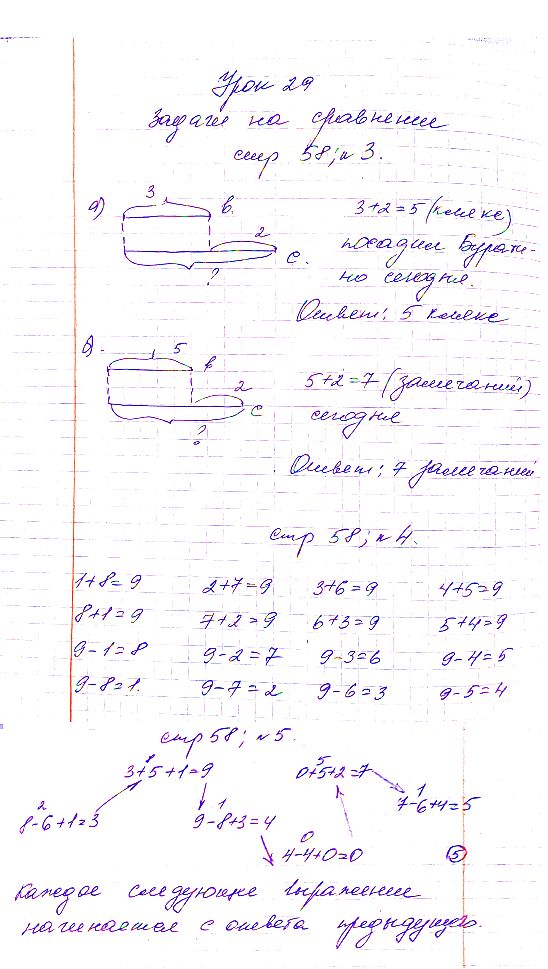 Урок 29
Задачи на сравнение
стр 58; н 3.
а) 3 в.
2
с.
?
3+2=5 (клякс)
посадил Бурати-
но сегодня.
Ответ: 5 клякс
б). 5 в
2
с
?
5+2=7 (замечаний)
сегодня
Ответ: 7 замечаний
стр 58; н 4.
1+8=9 2+7=9 3+6=9 4+5=9
8+1=9 7+2=9 6+3=9 5+4=9
9-1=8 9-2=7 9-3=6 9-4=5
9-8=1. 9-7=2 9-6=3 9-5=4
стр 58; н 5.
8
3+5+1=9
5
0+5+2=7
1
7-6+4=5
2
8-6+1=3
1
9-8+3=4
0
4-4+0=0
5
Каждое следующее выражение
начинается с ответа предыдущего.